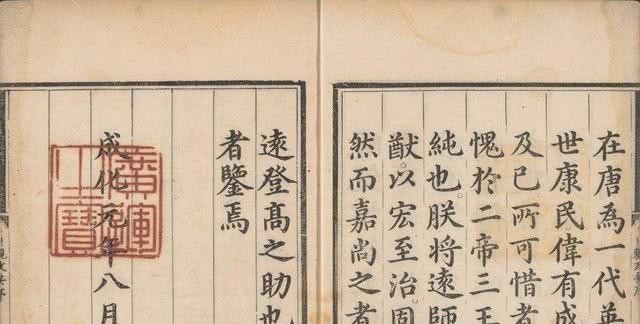 在唐為一代英
世康民偉有成
及已所可惜者
愧於二帝三王
純也朕將遠師
猷以宏至治固
然而嘉尚之者
遠登高之助也
者鑒焉
成化元年八月
廣運之寶